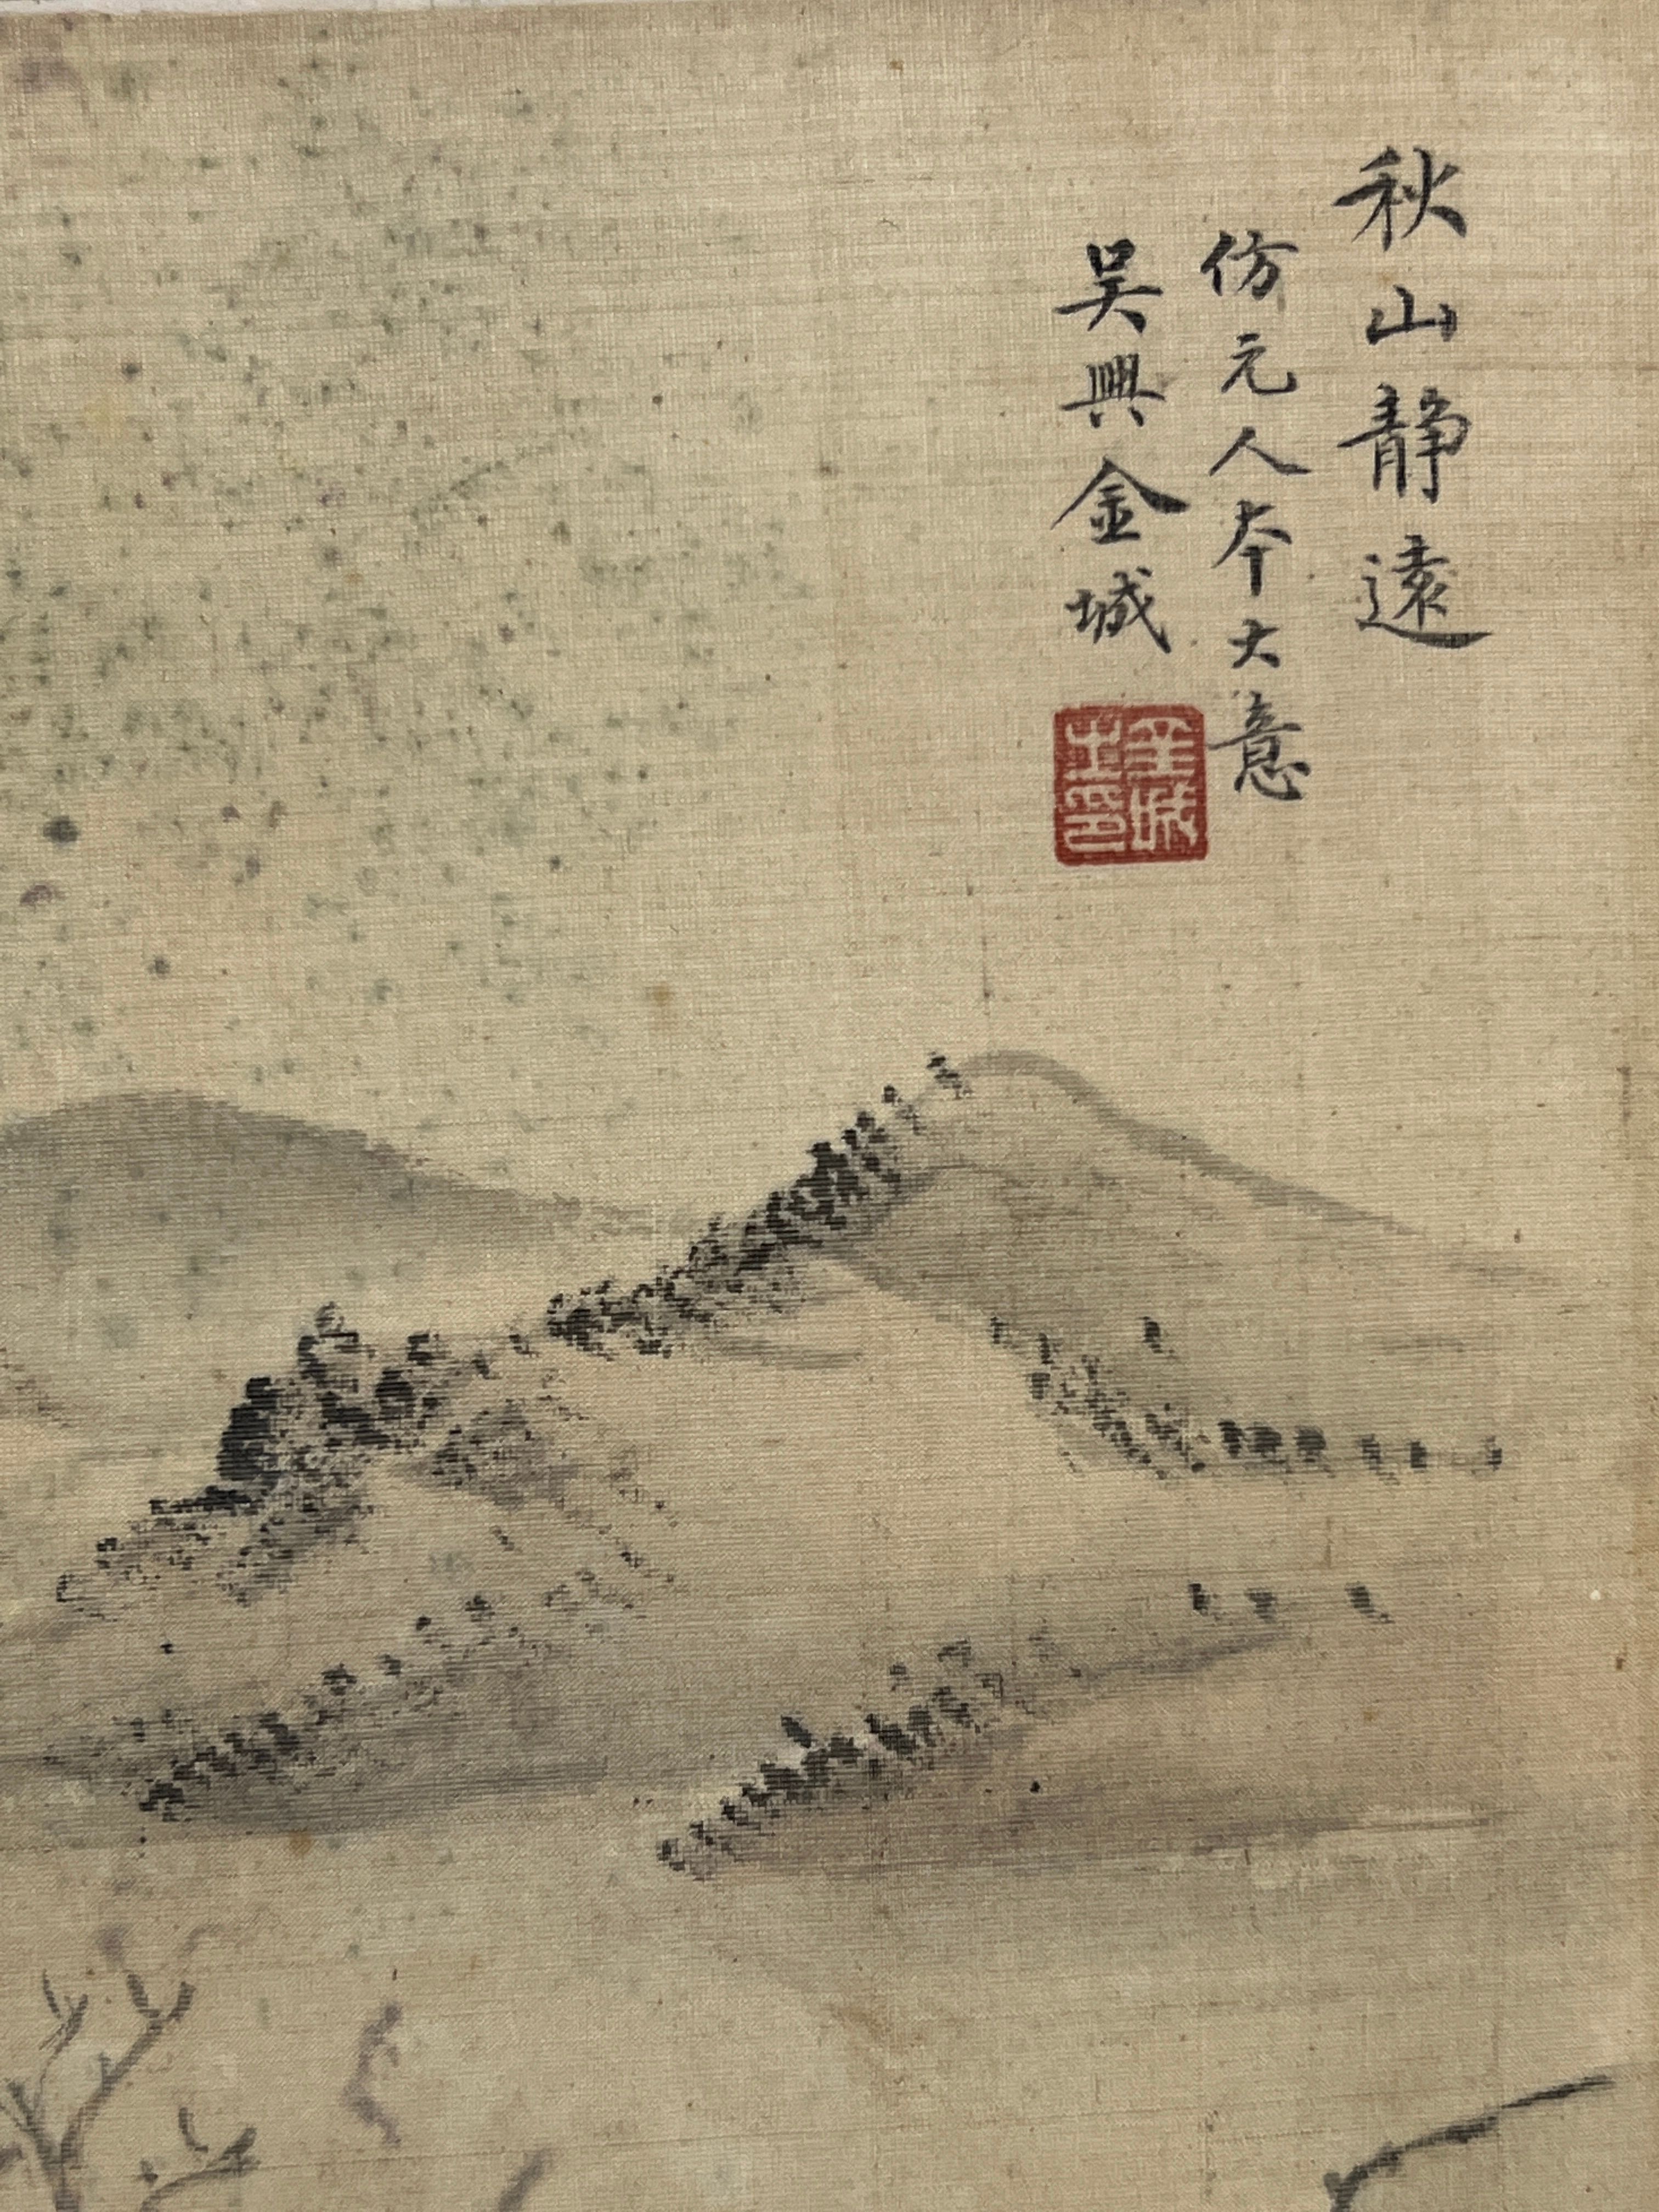 秋山靜遠
仿元人夲大意
吳興金城
金城之印